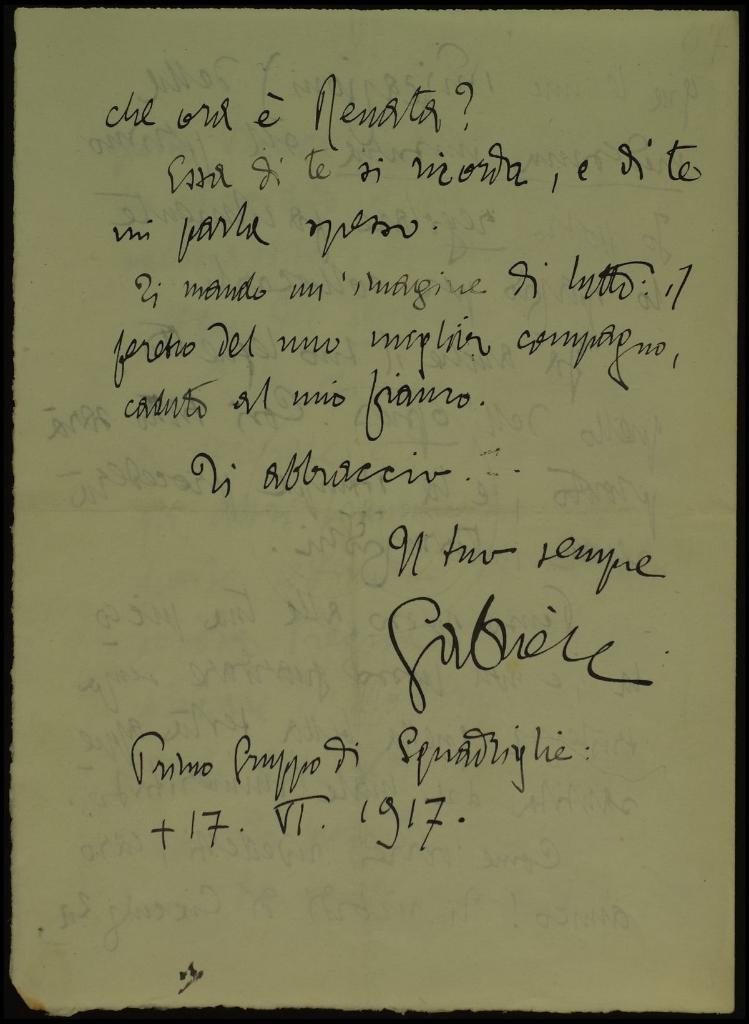 che ora è Renata?
Essa di te si ricorda, e di te
mi parla spesso.
Ti mando un'imagine di lutto: il
feretro del mio miglior compagno,
caduto al mio fianco.
Ti abbraccio.
Il tuo sempre
Gabriele
Primo Gruppo di Squadriglie:
+ 17. VI. 1917.